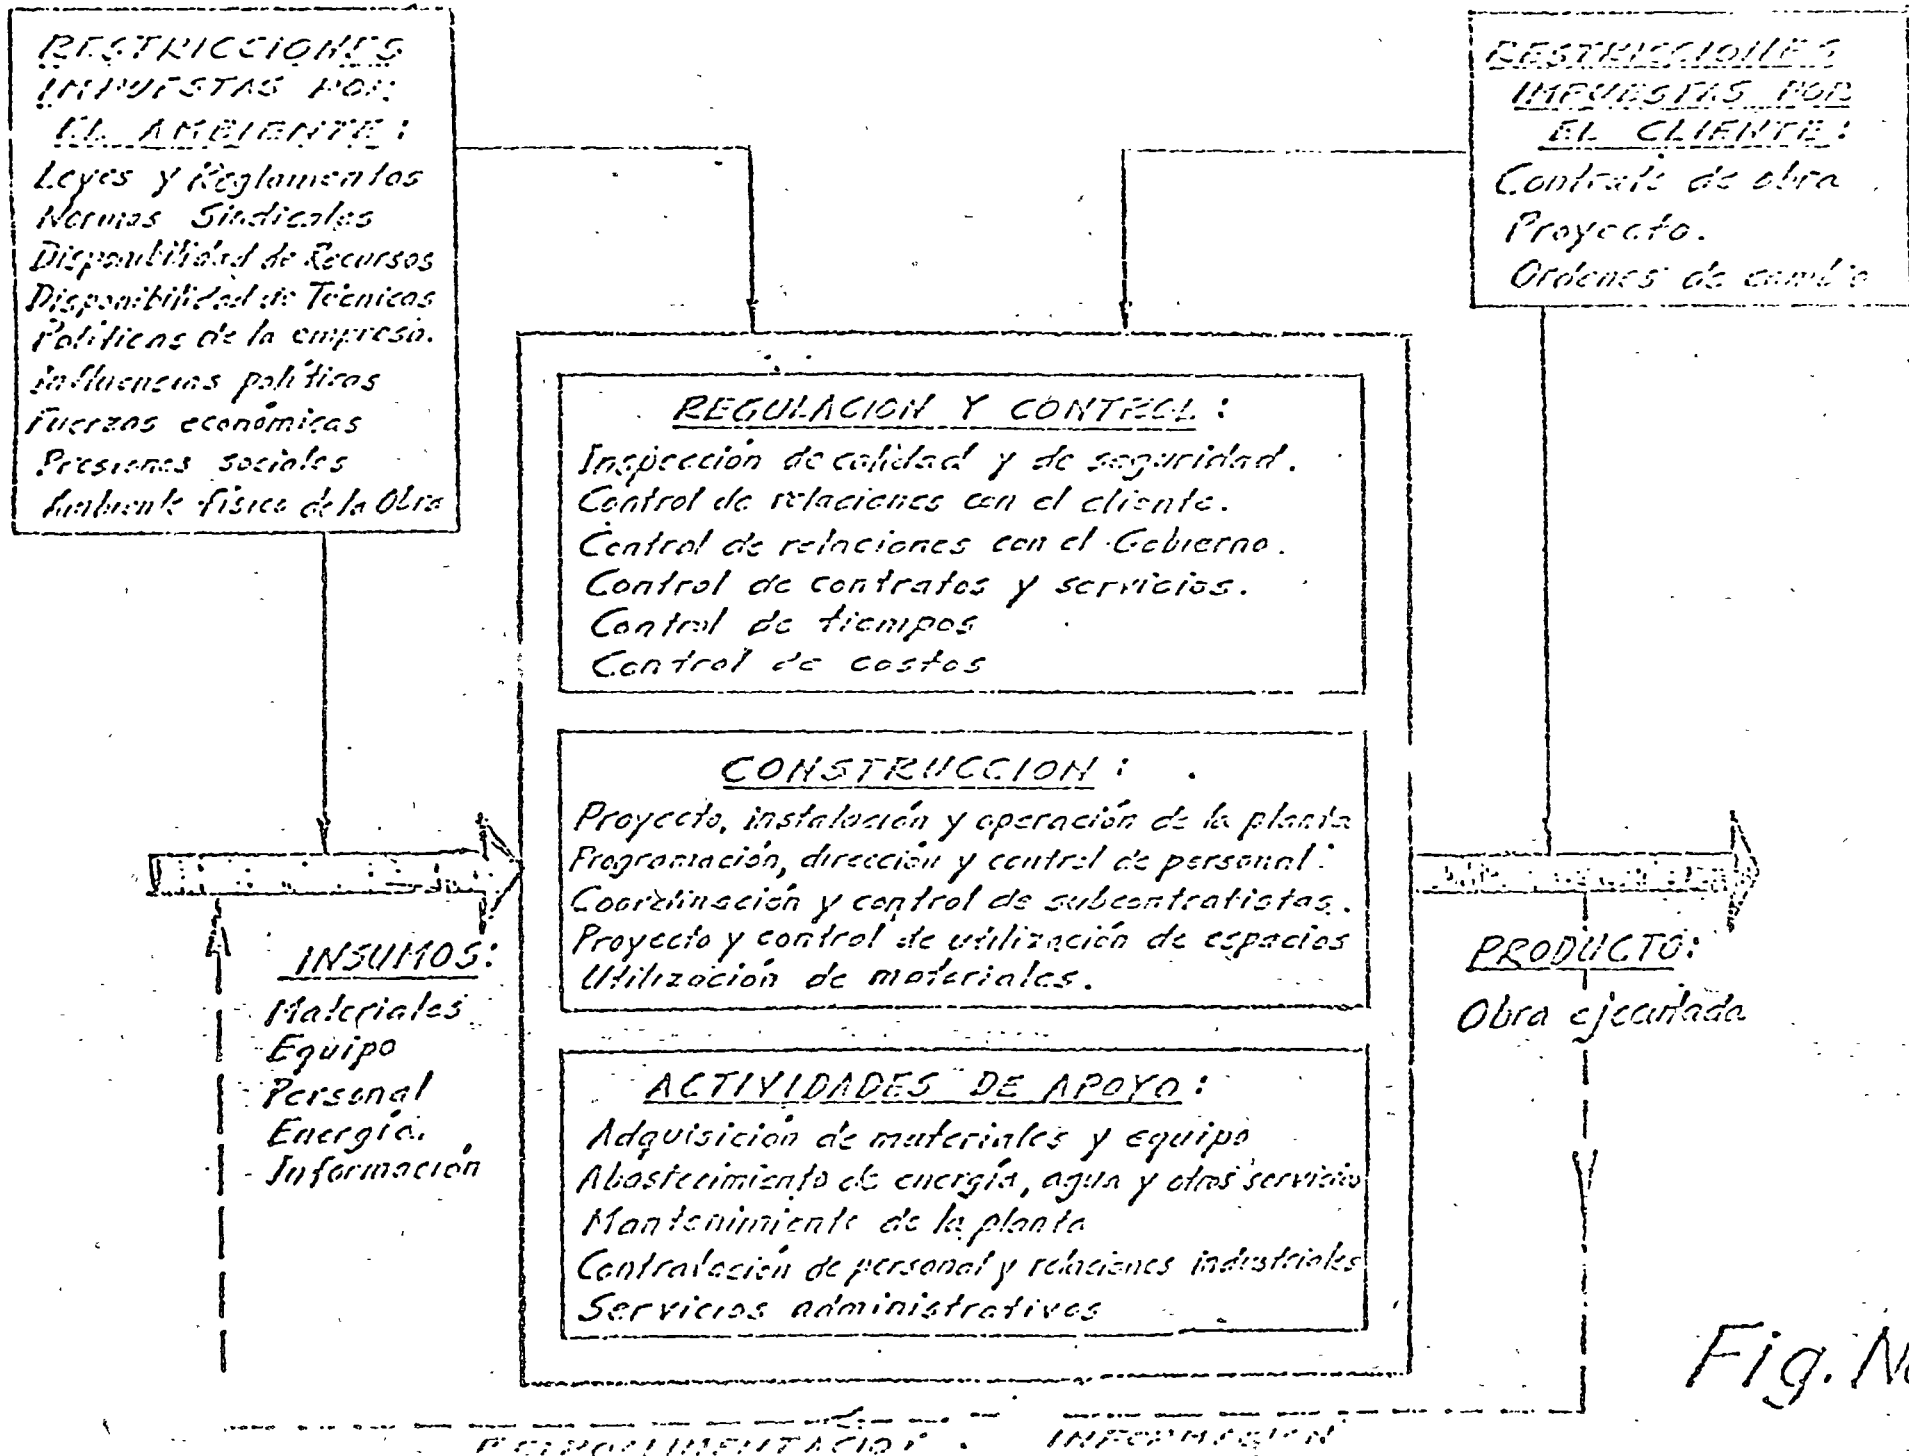 RESTRICCIONES
IMPUESTAS POR
EL AMBIENTE:
Leyes y Reglamentos
Normas Sindicales
Disponibilidad de Recursos
Disponibilidad de Técnicas
Políticas de la empresa.
Influencias políticas
Fuerzas económicas
Presiones sociales
Ambiente físico de la Obra
RESTRICCIONES
IMPUESTAS POR
EL CLIENTE:
Contrato de obra
Proyecto.
Ordenes de cambio
REGULACION Y CONTROL:
Inspección de calidad y de seguridad.
Control de relaciones con el cliente.
Control de relaciones con el Gobierno.
Control de contratos y servicios.
Control de tiempos
Control de costos
CONSTRUCCION:
Proyecto, instalación y operación de la planta
Programación, dirección y control de personal.
Coordinación y control de subcontratistas.
Proyecto y control de utilización de espacios
Utilización de materiales.
ACTIVIDADES DE APOYO:
Adquisición de materiales y equipo
Abastecimiento de energía, agua y otros servicio
Mantenimiento de la planta
Contratación de personal y relaciones industriales
Servicios administrativos
INSUMOS:
Materiales
Equipo
Personal
Energía.
Información
PRODUCTO:
Obra ejecutada
Fig. No
RETROALIMENTACION. INFORMACION